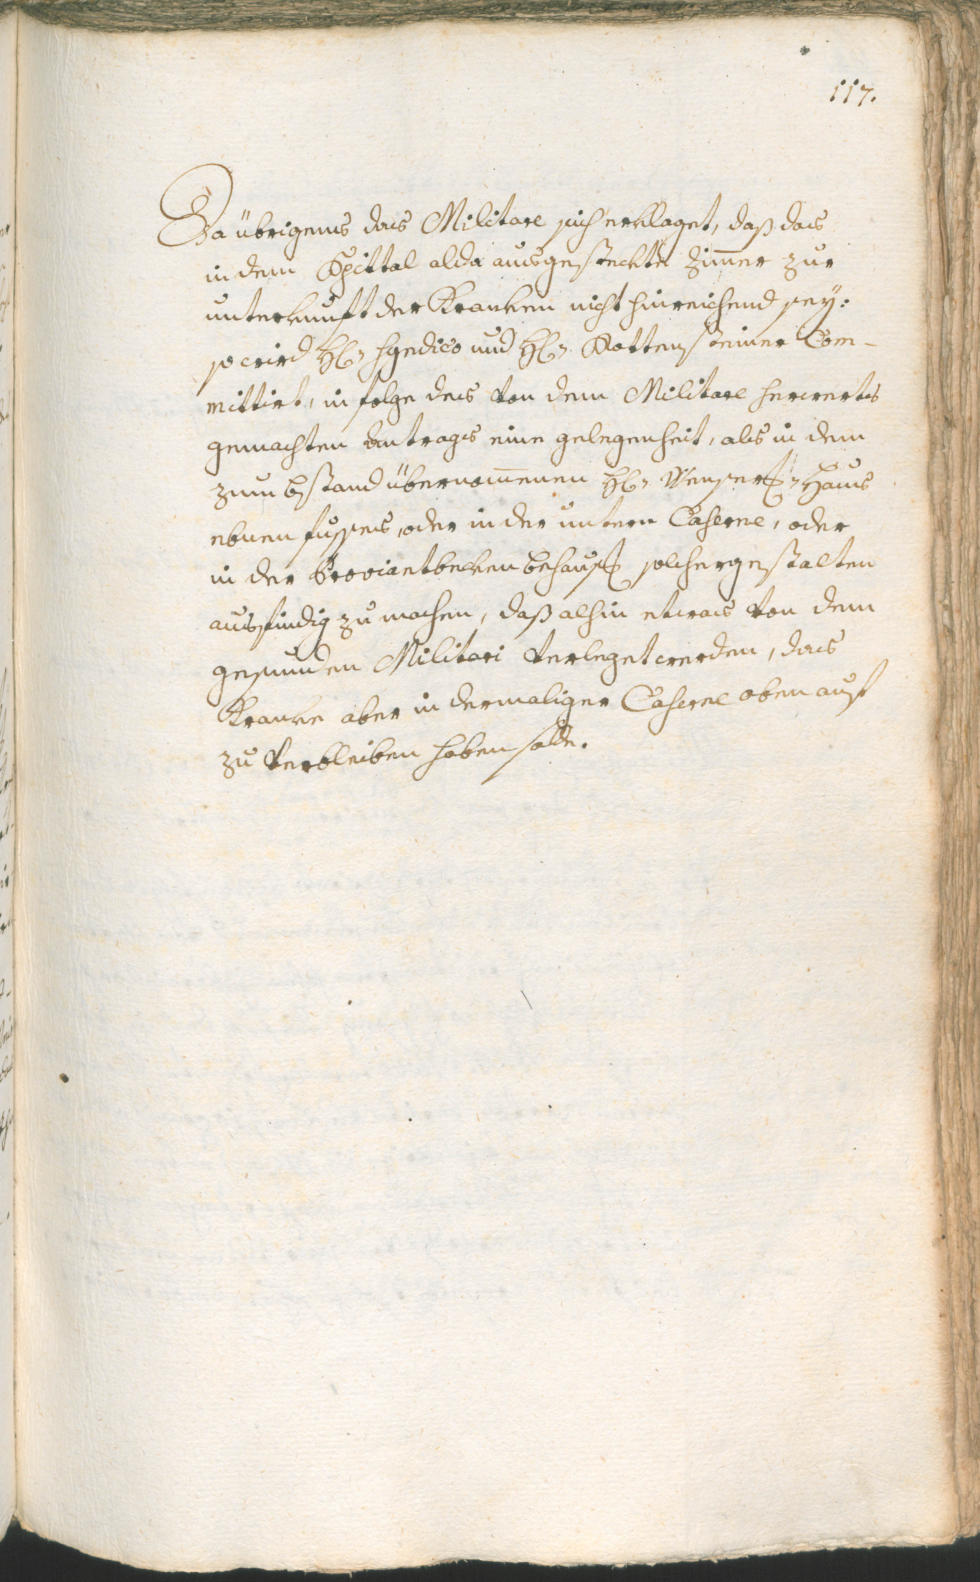 117.
Da übrigens das Militare sich erklaget, daß das
in dem Spittal alda ausgesteckte Zim̄er zur
unterkunft der Kranken nicht hinreichend sey:
so wird H: Syndico und H: Rottensteiner Com-
mittirt, in folge des von dem Militare herwerts
gemachten Antrags eine gelegenheit, als in dem
zum bstand übernom̄enen H: Haus
ebnen fusses, oder in der untern Caserne, oder
in der Proviantbecken behaus: solchergestalten
ausfindig zu machen, daß alhin etwas von dem
gesunden Militari verleget werden, das
Kranke aber in dermaliger Caserne oben auf
zu verbleiben haben solle.